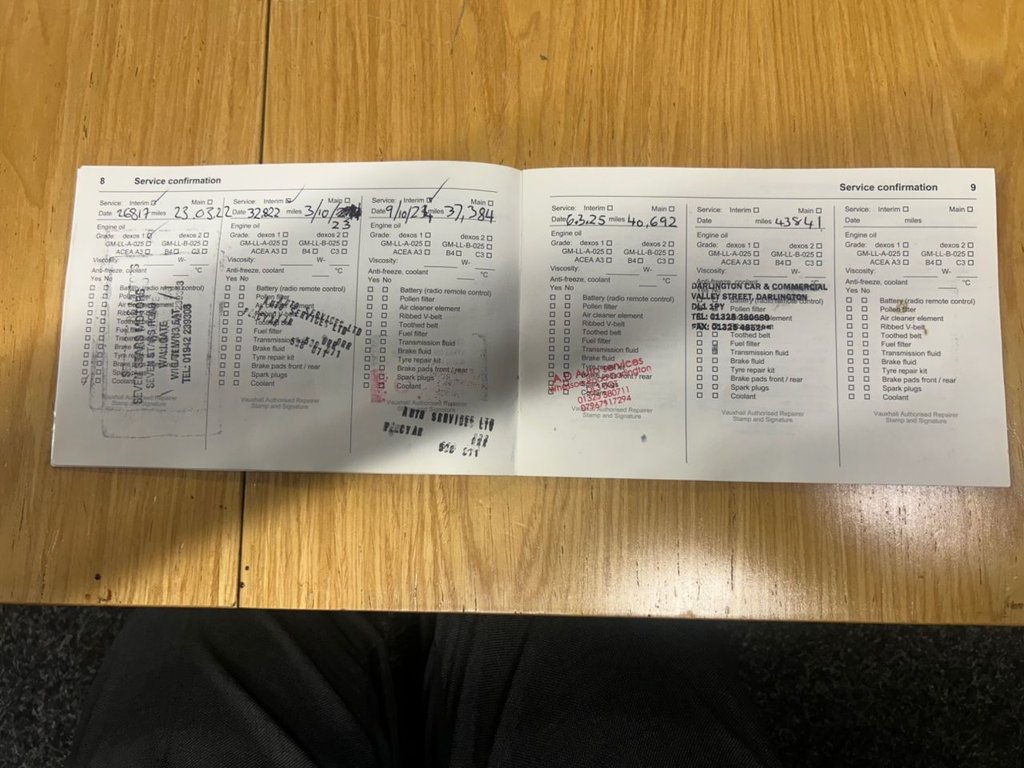 8 Service confirmation
Service: Interim Main
Date 26817 miles 23.03.22
Engine oil
Grade: dexos 1 dexos 2
GM-LL-A-025 GM-LL-B-025
ACEA A3 B4 C3
Viscosity: W-
Anti-freeze, coolant °C
Yes No
WALLGATE
TEL: 01942
Vauxhall Authorised Repairer
Stamp and Signature
Service: Interim Main
Date 32822 miles 3/10/
23
Engine oil
Grade: dexos 1 dexos 2
GM-LL-A-025 GM-LL-B-025
ACEA A3 B4 C3
Viscosity: W-
Anti-freeze, coolant °C
Yes No
Battery (radio remote control)
Pollen filter
Toothed belt
Fuel filter
Transmission fluid
Brake fluid
Tyre repair kit
Brake pads front / rear
Spark plugs
Coolant
Vauxhall Authorised Repairer
Stamp and Signature
Service: Interim Main
Date 9/10/24 miles 37,384
Engine oil
Grade: dexos 1 dexos 2
GM-LL-A-025 GM-LL-B-025
ACEA A3 B4 C3
Viscosity: W-
Anti-freeze, coolant °C
Yes No
Battery (radio remote control)
Pollen filter
Air cleaner element
Ribbed V-belt
Toothed belt
Fuel filter
Transmission fluid
Brake fluid
Tyre repair kit
Brake pads front / rear
Spark plugs
Coolant
Vauxhall Authorised Repairer
Stamp and Signature
AUTO SERVICES LTD
Service confirmation 9
Service: Interim Main
Date 6.3.25 miles 40,692
Engine oil
Grade: dexos 1 dexos 2
GM-LL-A-025 GM-LL-B-025
ACEA A3 B4 C3
Viscosity: W-
Anti-freeze, coolant °C
Yes No
Battery (radio remote control)
Pollen filter
Air cleaner element
Ribbed V-belt
Toothed belt
Fuel filter
Transmission fluid
Brake fluid
Tyre repair kit
Brake pads front / rear
Spark plugs
Coolant
A.D Auto Services
Darlington
01325 380711
07967917294
Vauxhall Authorised Repairer
Stamp and Signature
Service: Interim Main
Date miles 43841
Engine oil
Grade: dexos 1 dexos 2
GM-LL-A-025 GM-LL-B-025
ACEA A3 B4 C3
Viscosity: W-
Anti-freeze, coolant °C
DARLINGTON CAR & COMMERCIAL
VALLEY STREET, DARLINGTON
DL1 1PY
TEL: 01325 380680
FAX: 01325
Toothed belt
Fuel filter
Transmission fluid
Brake fluid
Tyre repair kit
Brake pads front / rear
Spark plugs
Coolant
Vauxhall Authorised Repairer
Stamp and Signature
Service: Interim Main
Date miles
Engine oil
Grade: dexos 1 dexos 2
GM-LL-A-025 GM-LL-B-025
ACEA A3 B4 C3
Viscosity: W-
Anti-freeze, coolant °C
Yes No
Battery (radio remote control)
Pollen filter
Air cleaner element
Ribbed V-belt
Toothed belt
Fuel filter
Transmission fluid
Brake fluid
Tyre repair kit
Brake pads front / rear
Spark plugs
Coolant
Vauxhall Authorised Repairer
Stamp and Signature